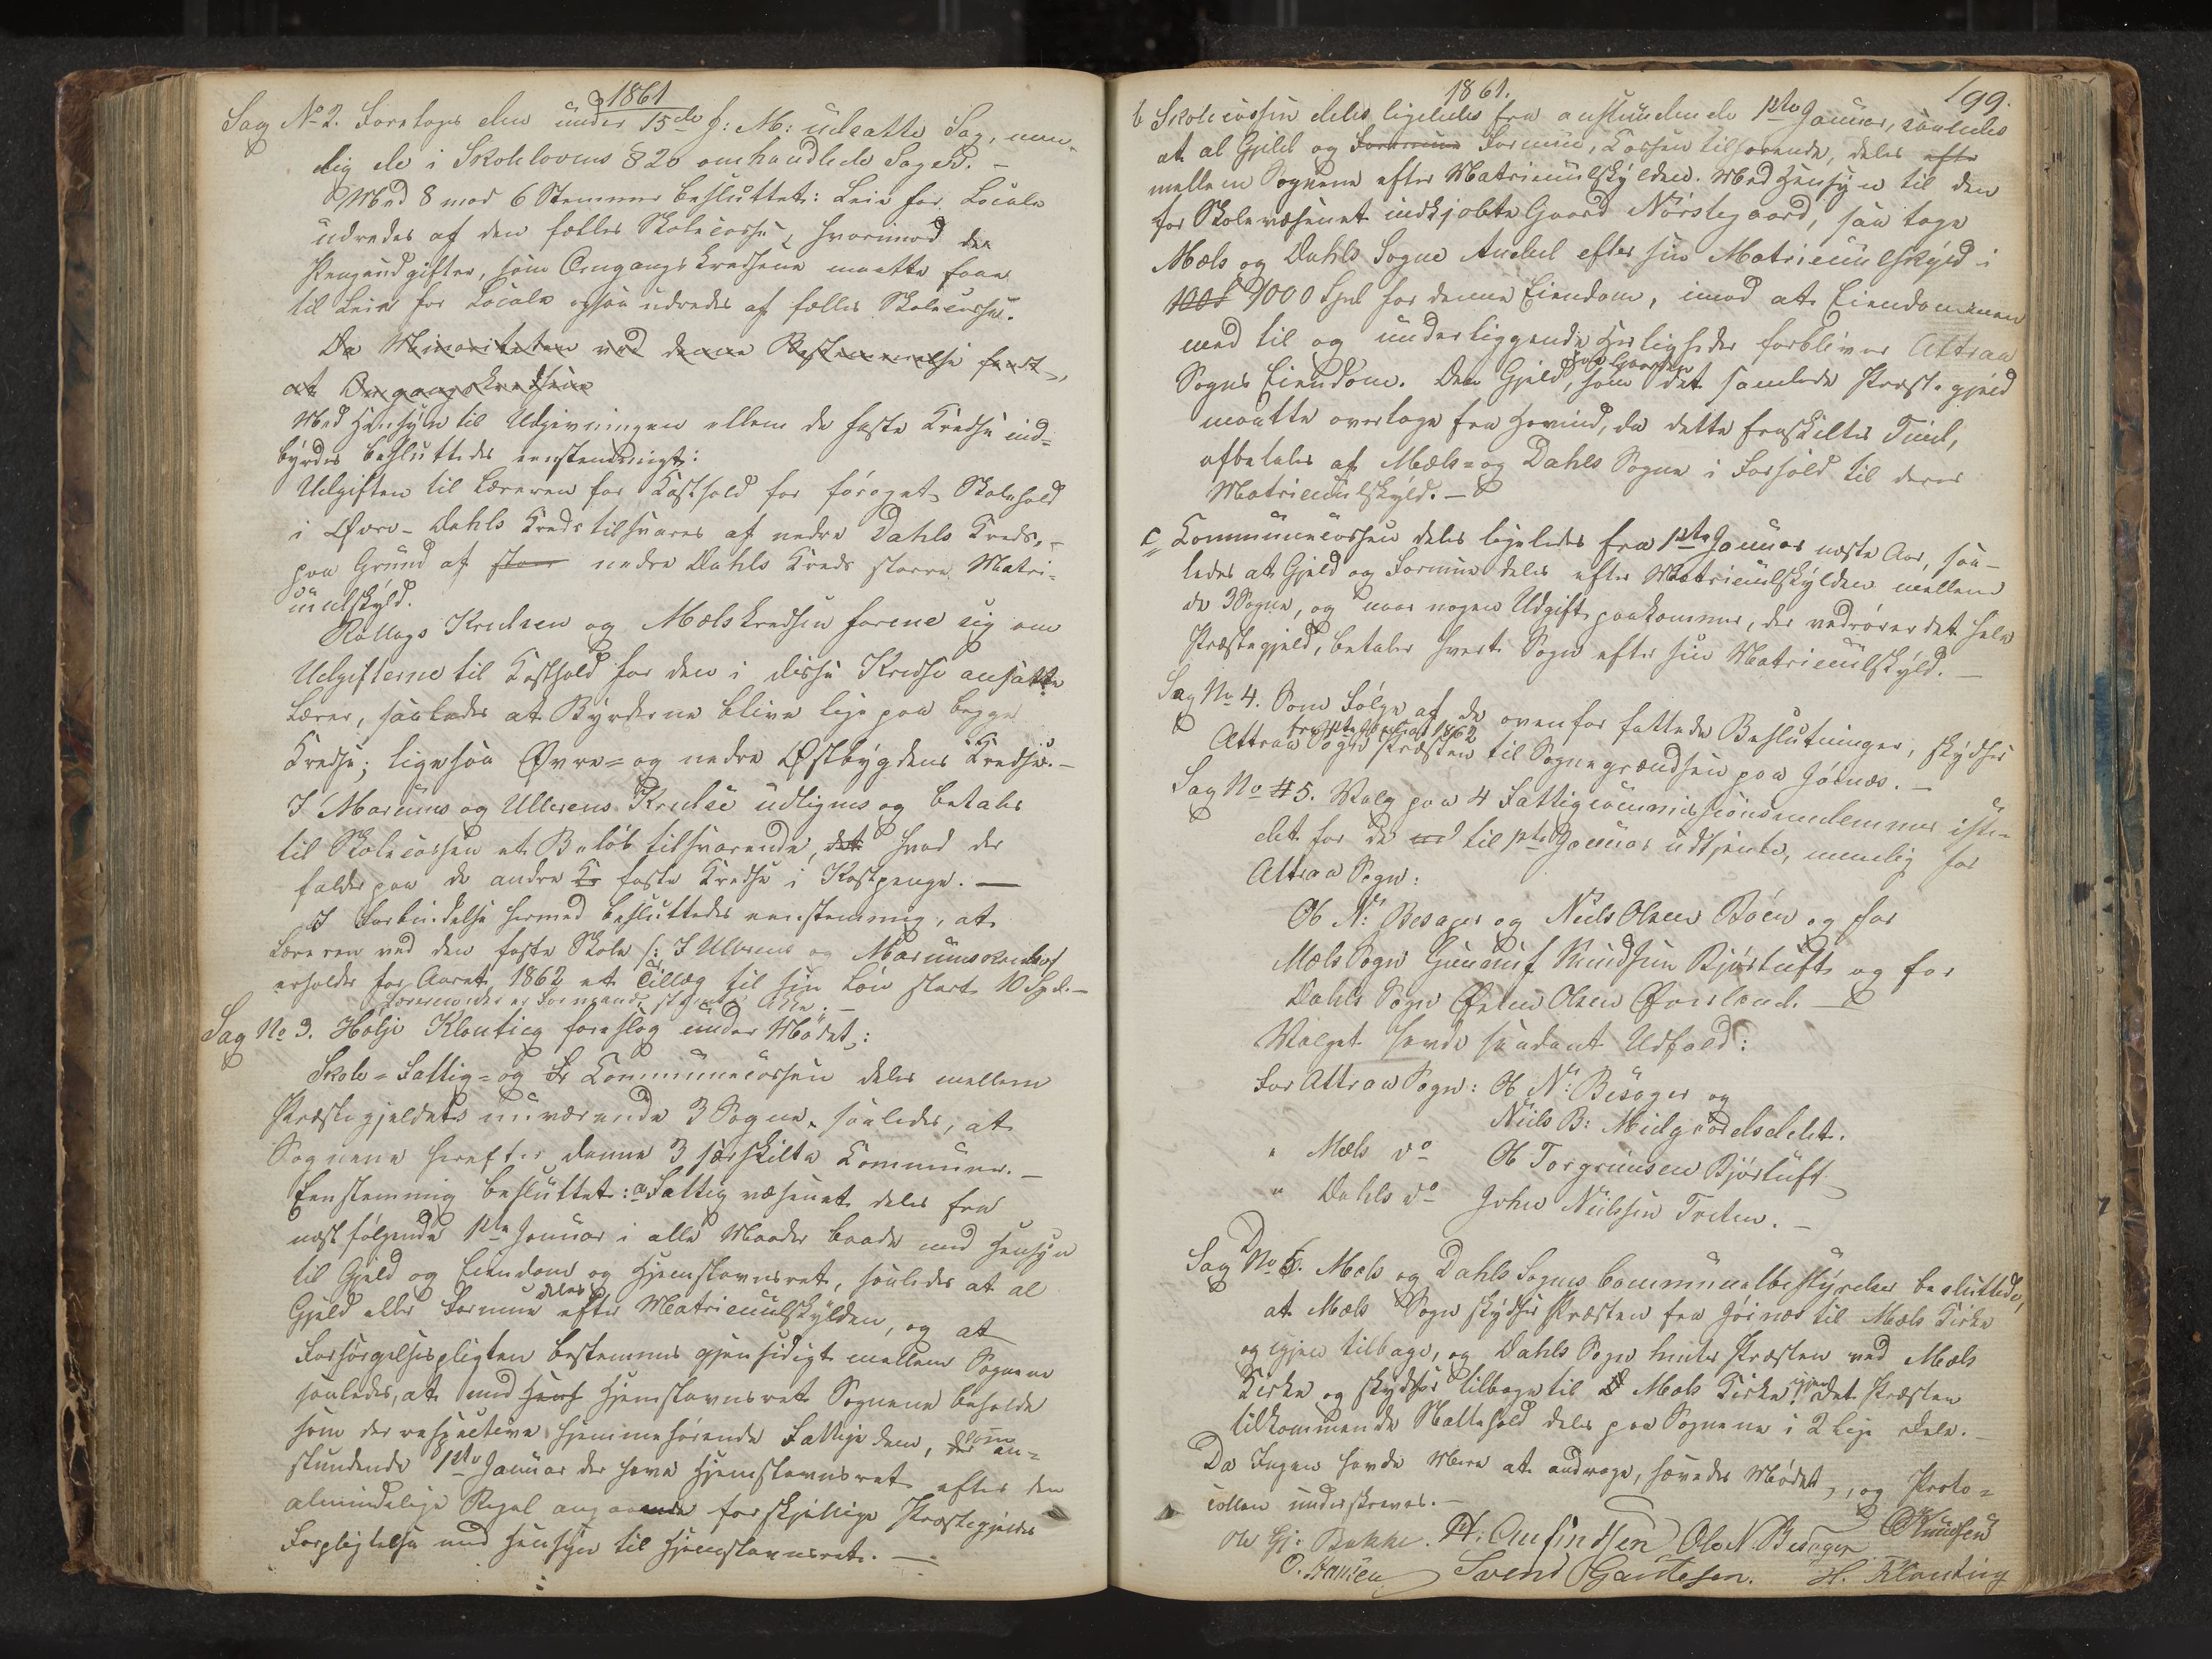 1861
Sag No 2. Foretoges den under 15de f: M: udsatte Sag, nem-
lig de i Skolelovens § 20 omhandlede Sager. –
Med 8 mod 6 Stemmer besluttet: Leie for Locale
udredes af den fælles Skolecasse, hvorimod de
Pengeudgifter, som Omgangskredsene maatte have
til Leie for Locale ogsaa udredes af fælles Skolecasse.
Da Minoriteten ved denne Bestemmelse fandt,
at Omgangskredsene
Med Hensyn til Udgivningen ellem de faste Kredse ind-
byrdes besluttedes eenstemmigt:
Udgiften til Læreren for Kosthold for forøget Skolehold
i Øvre-Dahls Kreds tilsvares af nedre Dahls Kreds, –
paa Grund af stor nedre Dahls Kreds større Matri-
culskyld.
Rollags Kredsen og Mælskredsen forene sig om
Udgifterne til Kosthold for den i disse Kredse ansatte
Lærer, saaledes at Byrderne blive lige paa begge
Kredse; ligesaa Øvre- og nedre Østbygdens Kredse. –
I Marums og Ullerens Kredse udlignes og betales
til Skolecassen et Beløb tilsvarende, det hvad der
falder paa de andre K faste Kredse i Kostpenge. –
I Forbindelse hermed besluttedes eenstemmig, at
Læreren ved den faste Skole /: I Ullerens og Marums Kredse/
erholder for Aaret 1862 et Tillæg til sin Løn stort 10 Spd. –
Sag No 3. Holje Klonteig foreslog under Mødet:
Skole- Fattig- og Fr Communecassen deles mellem
Præstegjeldets nuværende 3 Sogne, saaledes, at
Sognene herefter danne 3 særskilte Communer. –
Eenstemmig besluttet: a Fattigvæsenet deles fra
næstfølgende 1ste Januar i alle Maader baade med Hensyn
til Gjeld og Eiendom og Hjemstavnsret, saaledes at al
Gjeld eller Formue deles efter Matriculskylden, og at
Forsørgelsespligten bestemmes gjensidigt mellem Sognene
saaledes, at med Hens Hjemstavnsret Sognene beholde
som der respective hjemmehørende Fattige dem, der som an-
stundende 1ste Januar der have Hjemstavnsret efter den
almindelige Regel angaaende forskjellige Præstegjeldes
Forpligtelse med Hensyn til Hjemstavnsret. –
1861.
199.
b Skolecassen deles ligeledes fra anstundende 1ste Januar, saaledes
at al Gjeld og Formue Formue, Cassen tilhørende, deles efter
mellem Sognene efter Matriculskylden. Med Hensyn til den
for Skolevæsenet indkjøbte Gaard Nørstegaard, saa tage
Mæls og Dahls Sogne Andel efter sin Matriculskyld i
100 1000 Spd for denne Eiendom, imod at Eiendommen
med til og underliggende Herligheder forbliver Attraa
Sogns Eiendom. Den Gjeld, som det samlede Præstegjeld
maatte overtage fra Hovind, da dette fraskiltes Tind,
afbetales af Mæls- og Dahls Sogne i Forhold til deres
Matriculskyld. –
c Communecassen deles ligeledes fra 1ste Januar næste Aar, saa-
ledes at Gjeld og Formue deles efter Matriculskylden mellem
de 3 Sogne, og naar nogen Udgift paakommer, der vedrører det hele
Præstegjeld, betaler hvert Sogn efter sin Matriculskyld. –
Sag No 4. Som Følge af de ovenfor fattede Beslutninger, skydser
Attraa Sogn Præsten til Sognegrændsen paa Gøinæs. –
Sag No 5. Valg paa 4 Fattigcommissionsmedlemmer iste-
det for de ud til 1ste Januar udtjente, nemlig for
Attraa Sogn:
Ob N: Besager og Neils Olsen Bøen og for
Mæls Sogn Gunnuf Knudsen Bjørtuft og for
Dahls Sogn Østen Olsen Øverland. –
Valget havde saadant Udfald:
For Attraa Sogn: Ob N: Besager og
Neils B: Midgaardsdelet.
" Mæls do Ob Torgrimsen Bjørtuft
" Dahls do John Neilssen Traten. –
Sag No 6. Mæls og Dahls Sognes Communalbestyrelser besluttede,
at Mæls Sogn skydser Præsten fra Gøinæs til Mæls Kirke
og igjen tilbage, og Dahls Sogn henter Præsten ved Mæls
Kirke og skydser tilbage til Mæls Kirke igjen. Det Præsten
tilkommende Natehold deles paa Sognene i 2 lige Dele. –
Da Ingen havde Mere at andrage, hævedes Mødet, og Proto-
collen underskreves. –
Ole Gj. Bakke. H: Amundsen Ole N. Besager Knudsen
O. Hansen Svend Gautesen. H. Klonteig